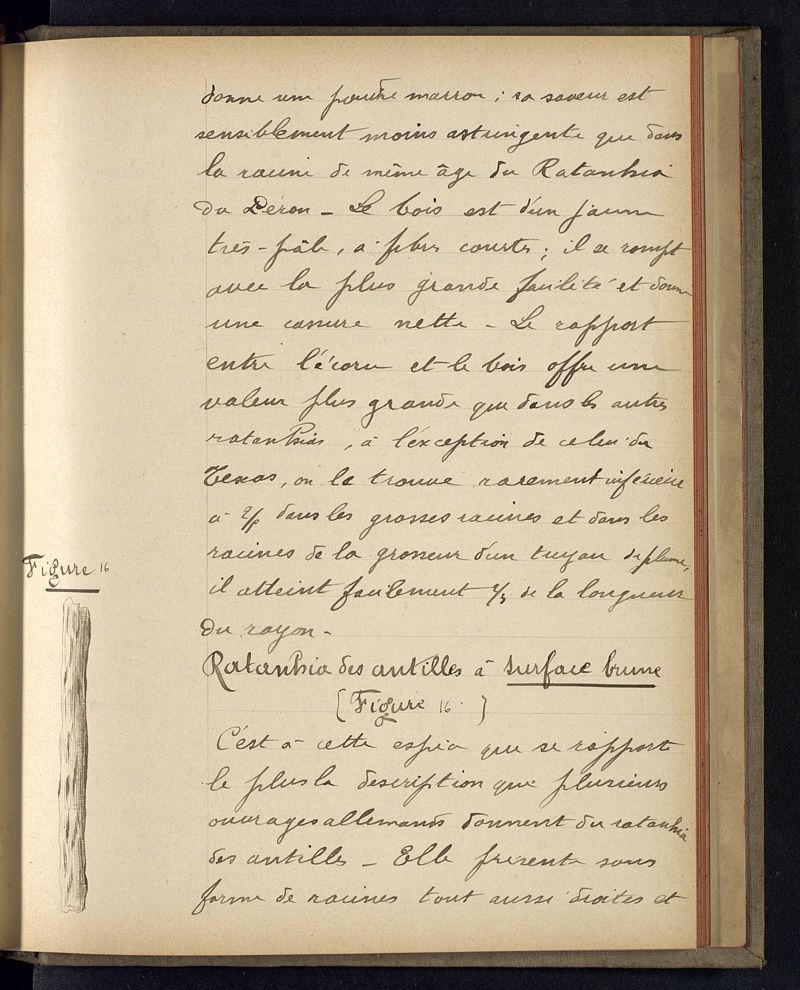 donne une poudre marron ; sa saveur est
sensiblement moins astringente que dans
la racine de même âge du Ratanhia
du Pérou - Le bois est d'un jaune
très-pâle, à fibres courtes ; il se rompt
avec la plus grande facilité et donne
une cassure nette - Le rapport
entre l'écorce et le bois offre une
valeur plus grande que dans les autres
ratanhias, à l'éxception de celui du
Texas, on le trouve rarement inférieur
à dans les grosses racines et dans les
racines de la grosseur d'un tuyau de plume,
il atteint facilement de la longueur
du rayon -
Ratanhia des antilles à surface brune
(Figure 16)
C'est à cette espèce que se rapporte
le plus la description que plusieurs
ouvrages allemands donnent du ratanhia
des antilles - Elle présente sous
forme de racines tout aussi droites et
Figure 16